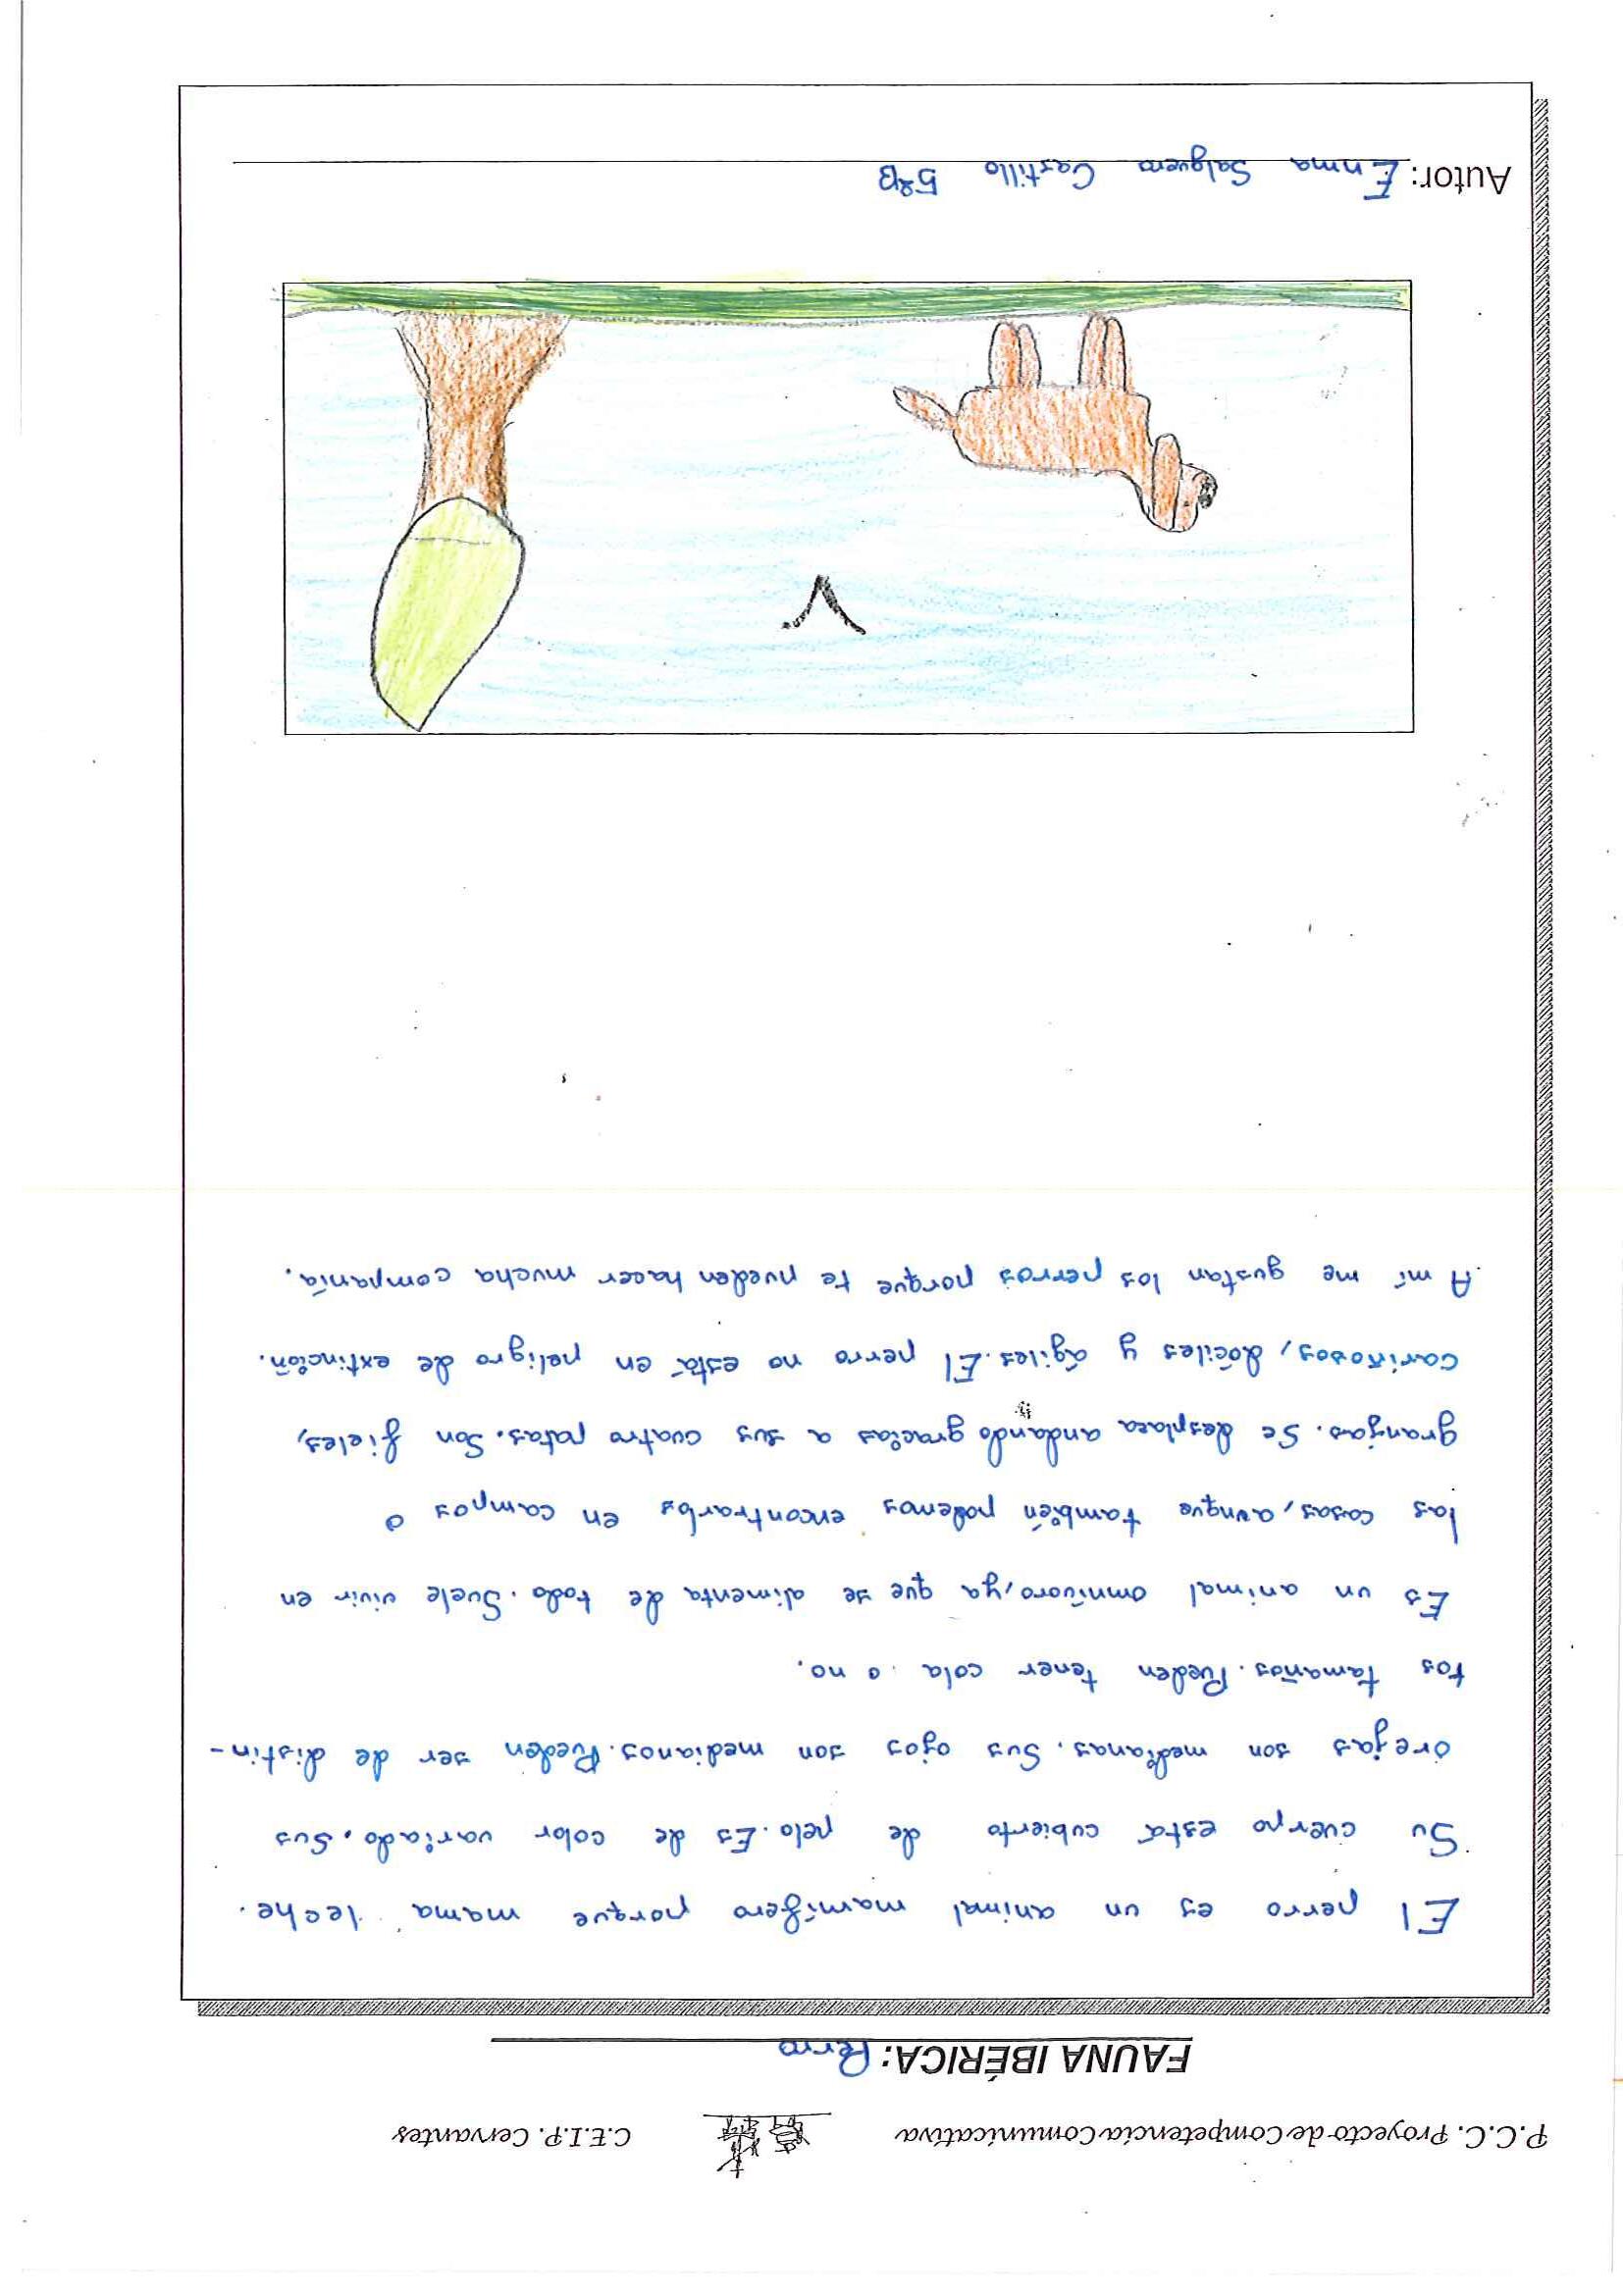 P.C.C. Proyecto de Competencia Comunicativa C.E.I.P. Cervantes
FAUNA IBÉRICA: Perro
El perro es un animal mamífero porque mama leche.
Su cuerpo está cubierto de pelo. Es de color variado. Sus
orejas son medianas. Sus ojos son medianos. Pueden ser de distin-
tos tamaños. Pueden tener cola o no.
Es un animal omnívoro, ya que se alimenta de todo. Suele vivir en
las casas, aunque también podemos encontrarlos en campos o
granjas. Se desplaza andando gracias a sus cuatro patas. Son fieles,
cariñosos, dóciles y ágiles. El perro no está en peligro de extinción.
A mí me gustan los perros porque te pueden hacer mucha compañía.
Autor: Enma Salguero Castillo 5ºB